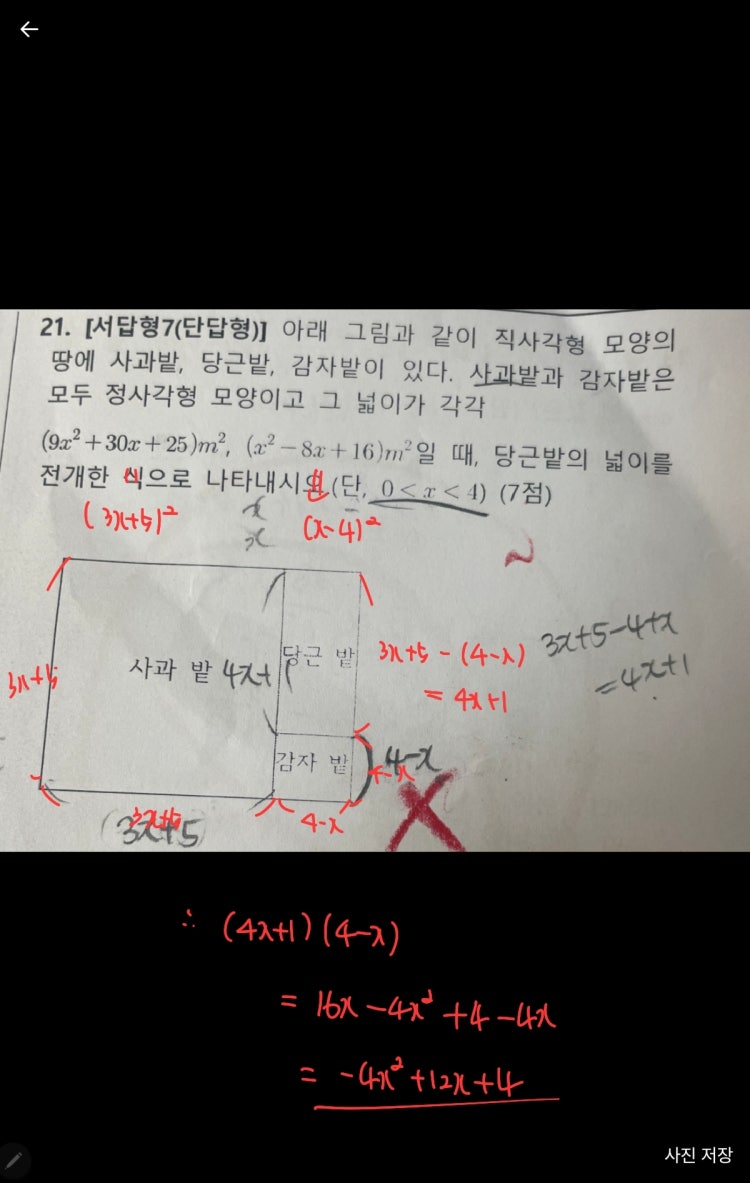 21. [서답형7(단답형)] 아래 그림과 같이 직사각형 모양의
땅에 사과밭, 당근밭, 감자밭이 있다. 사과밭과 감자밭은
모두 정사각형 모양이고 그 넓이가 각각
(9x²+30x+25)m², (x²-8x+16)m²일 때, 당근밭의 넓이를
전개한 식으로 나타내시오(단, 0<x<4) (7점)
(3x+5)²
x
x
(x-4)²
3x+5
사과 밭
4x+1
당근 밭
3x+5-(4-x)
= 4x+1
3x+5-4+x
=4x+1
감자 밭
4-x
4-x
3x+5
(3x+5)
4-x
∴ (4x+1)(4-x)
= 16x-4x²+4-4x
= -4x²+12x+4
사진 저장